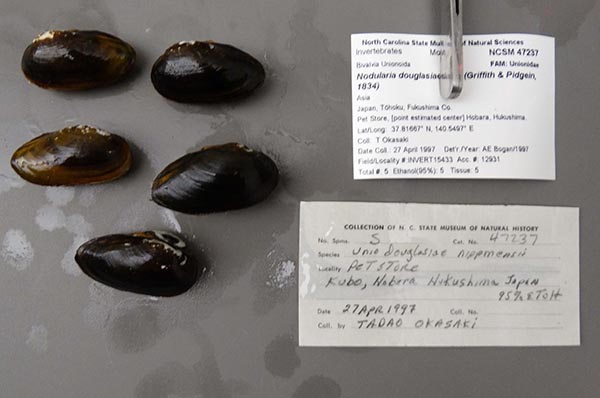 North Carolina State Mus of Natural Sciences
Invertebrates Mol NCSM 47237
Bivalvia Unionoida FAM: Unionidae
Nodularia douglasiae (Griffith & Pidgein,
1834)
Asia
Japan, Tôhoku, Fukushima Co.
Pet Store, [point estimated center] Hobara, Hukushima.
Lat/Long: 37.81667° N, 140.5497° E
Coll: T Okasaki
Date Coll.: 27 April 1997 Det'r./Year: AE Bogan/1997
Field/Locality #:INVERT15433 Acc. #: 12931
Total #: 5 Ethanol(95%): 5 Tissue: 5
COLLECTION OF N. C. STATE MUSEUM OF NATURAL HISTORY
No. Spms. 5 Cat. No. 47237
Species Unio douglasiae nipponensis
Locality PET STORE
Kubo, Hobara Hukushima Japan
95% ETOH
Date 27 APR 1997 Coll. No.
Coll. by TADAO OKASAKI